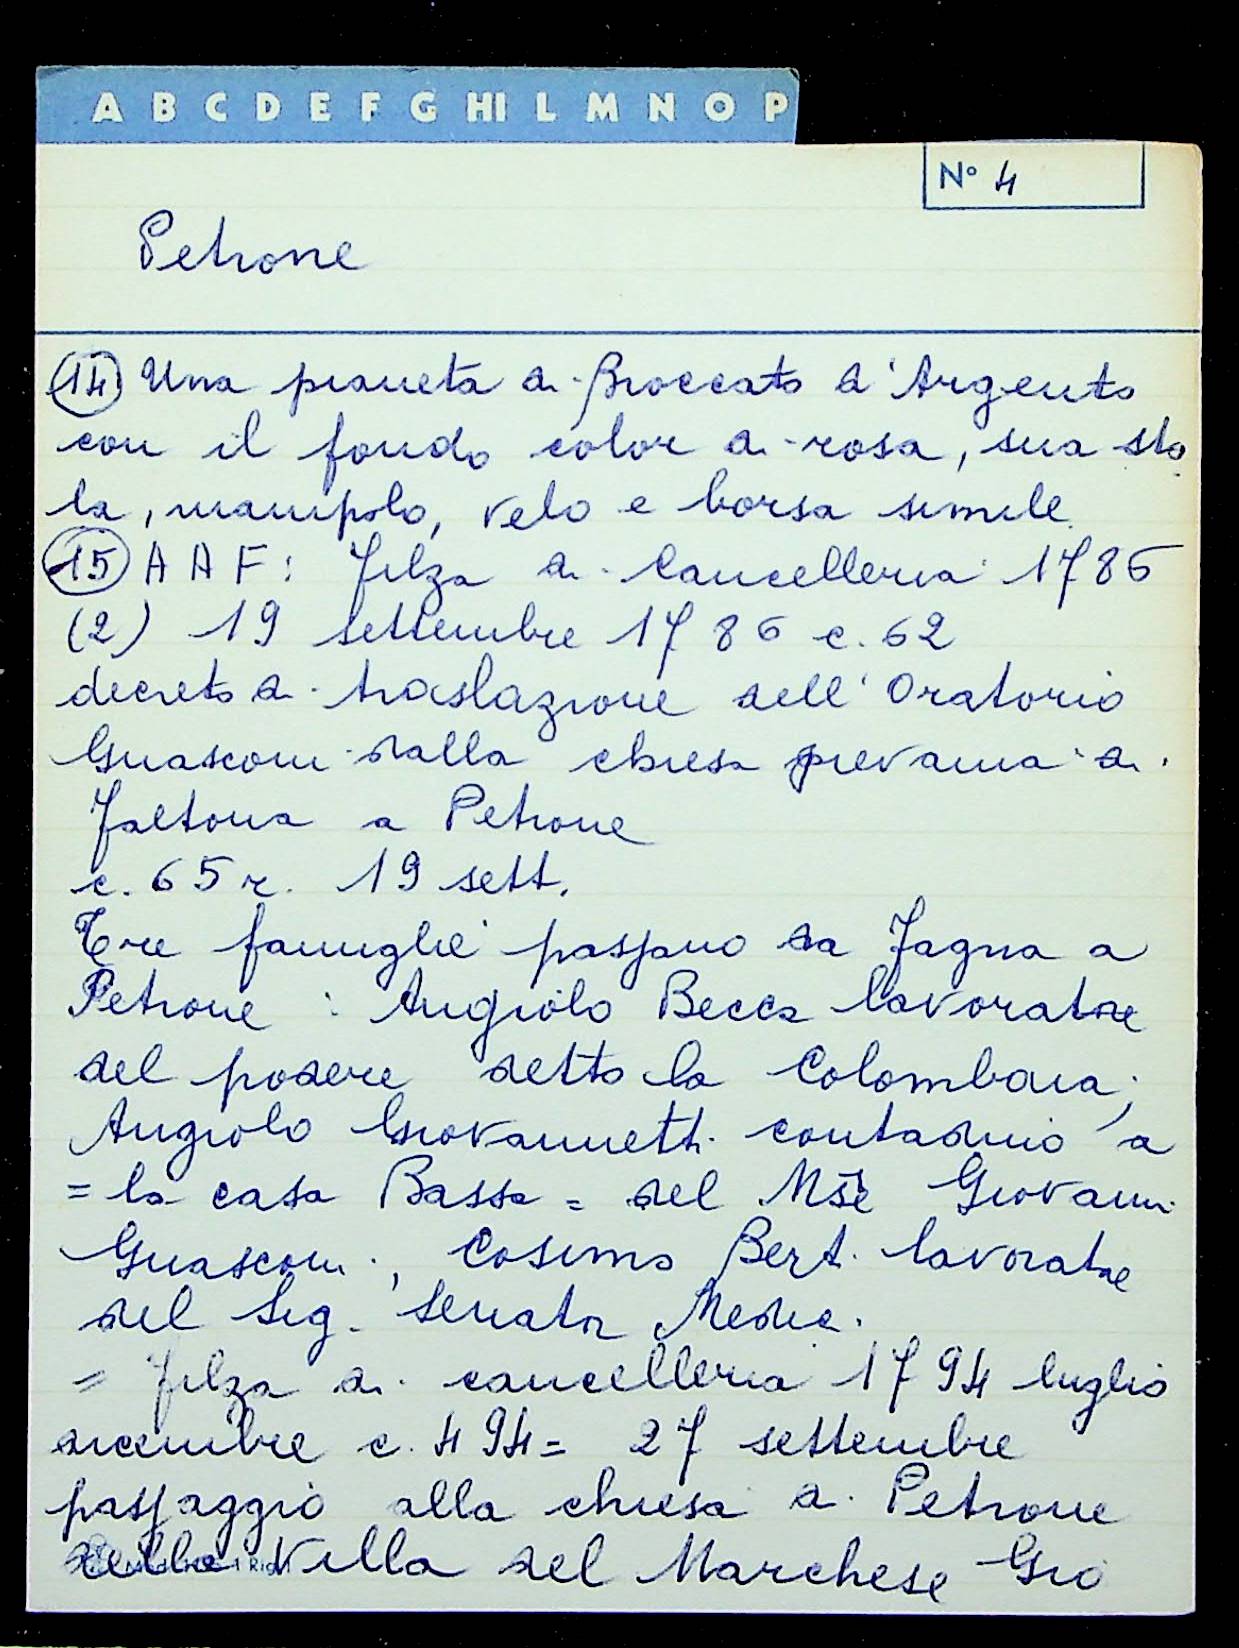 A B C D E F G HI L M N O P
N° 4
Petrone
14 Una pianeta di Broccato d'Argento
con il fondo color di rosa, sua sto
la, manipolo, velo e borsa simile.
15 A A F: Filza di Cancelleria 1786
(2) 19 settembre 1786 c. 62
decreto di traslazione dell'Oratorio
Guasconi dalla chiesa prevania di
Faltona a Petrone
c. 65 r. 19 sett.
Tre famiglie passano da Fagna a
Petrone : Angiolo Becca lavoratore
del podere detto la Colombaia;
Angiolo Giovannetti contadino a
= la casa Bassa = del Mse Giovanni
Guasconi, Cosimo Berti lavoratore
del Sig. Senator Medici.
= Filza di cancelleria 1794 luglio
dicembre c. 494 = 27 settembre
passaggio alla chiesa di Petrone
della Villa del Marchese Gio